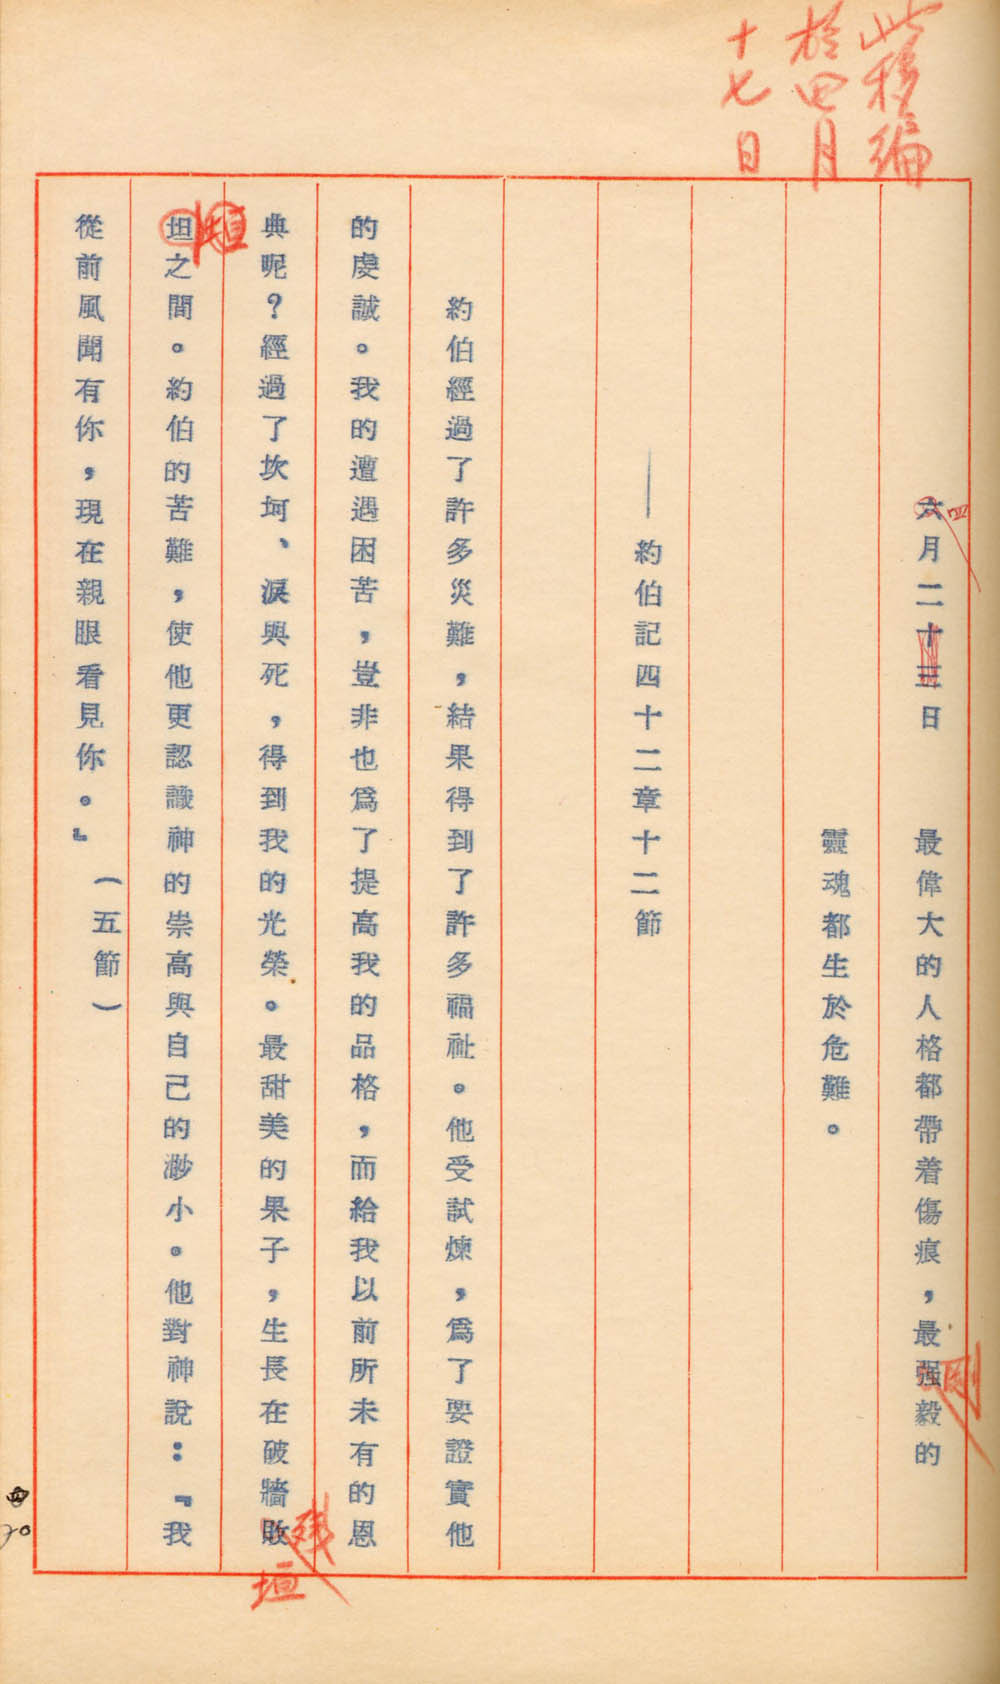 此移編
於四月
十七日
六月二十三日　最偉大的人格都帶着傷痕，最强毅的
四
剛
靈魂都生於危難。
——約伯記四十二章十二節
約伯經過了許多災難，結果得到了許多福祉。他受試煉，爲了要證實他
的虔誠。我的遭遇困苦，豈非也爲了提高我的品格，而給我以前所未有的恩
典呢？經過了坎坷、淚與死，得到我的光榮。最甜美的果子，生長在破牆敗
殘
垣
垣
坦之間。約伯的苦難，使他更認識神的崇高與自己的渺小。他對神說：『我
從前風聞有你，現在親眼看見你。』（五節）